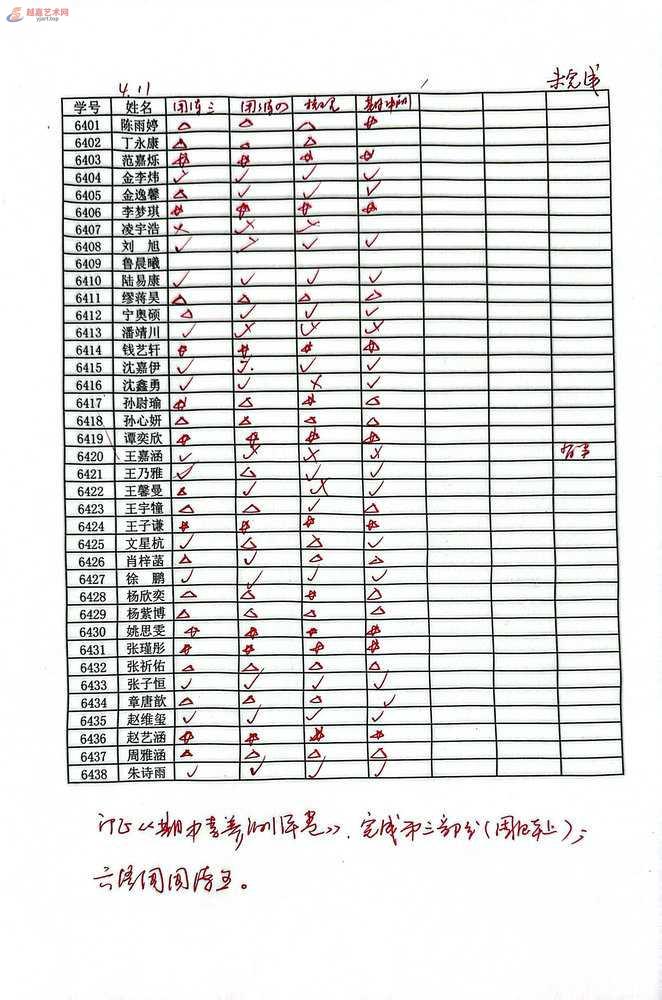 越嘉艺术网
yjart.top
4.11 未完成
学号 姓名 团队三 期中
6401 陈雨婷 △ △ △ ☆
6402 丁永康 △ △ △
6403 范嘉烁 ☆ ☆ ☆ ☆
6404 金李炜 ✓ ✓ ✓ ✓
6405 金逸馨 △ ✓ ✓ ✓
6406 李梦琪 ☆ ☆ ☆ ☆
6407 凌宇浩 ✗ ✗ ✗
6408 刘 旭 ✓ ✓ ✓ ✓
6409 鲁晨曦
6410 陆易康 ✓ ✓ ✓ ✓
6411 缪蒋昊 △ △ △ △
6412 宁奥硕 △ ✓ ✓ ✓
6413 潘靖川 ✓ ✗ ✗ ✗
6414 钱艺轩 ☆ ☆ ☆ ☆
6415 沈嘉伊 ✓ ✓ ✓ ✓
6416 沈鑫勇 ✓ ✓ ✗ ✓
6417 孙尉瑜 ☆ △ ☆ △
6418 孙心妍 △ △ △ △
6419 谭奕欣 ☆ ☆ ☆ ☆
6420 王嘉涵 ✓ ✗ ✗ ✗
6421 王乃雅 ✓ △ ✓ ✓
6422 王馨曼 △ ✓ ✗ ✓
6423 王宇犝 △ △ ✓ △
6424 王子谦 ☆ ☆ ☆ ☆
6425 文星杭 ✓ △ △ ✓
6426 肖梓菡 △ ✓ △ △
6427 徐 鹏 ✓ ✓ ✓ ✓
6428 杨欣奕 △ △ ☆ △
6429 杨紫博 △ △ △ △
6430 姚思雯 ☆ ☆ ☆ ☆
6431 张瑾彤 ☆ ☆ ☆ ☆
6432 张祈佑 △ △ △ △
6433 张子恒 ✓ ✓ ✓ ✓
6434 章唐歆 △ △ △ ✓
6435 赵维玺 ✓ ✓ ✓ ✓
6436 赵艺涵 ☆ ☆ ☆ ☆
6437 周雅涵 △ △ △ △
6438 朱诗雨 ✓ ✓ ✓ ✓
订正《期中素养测评卷》、完成第三部分（周日晚上）；